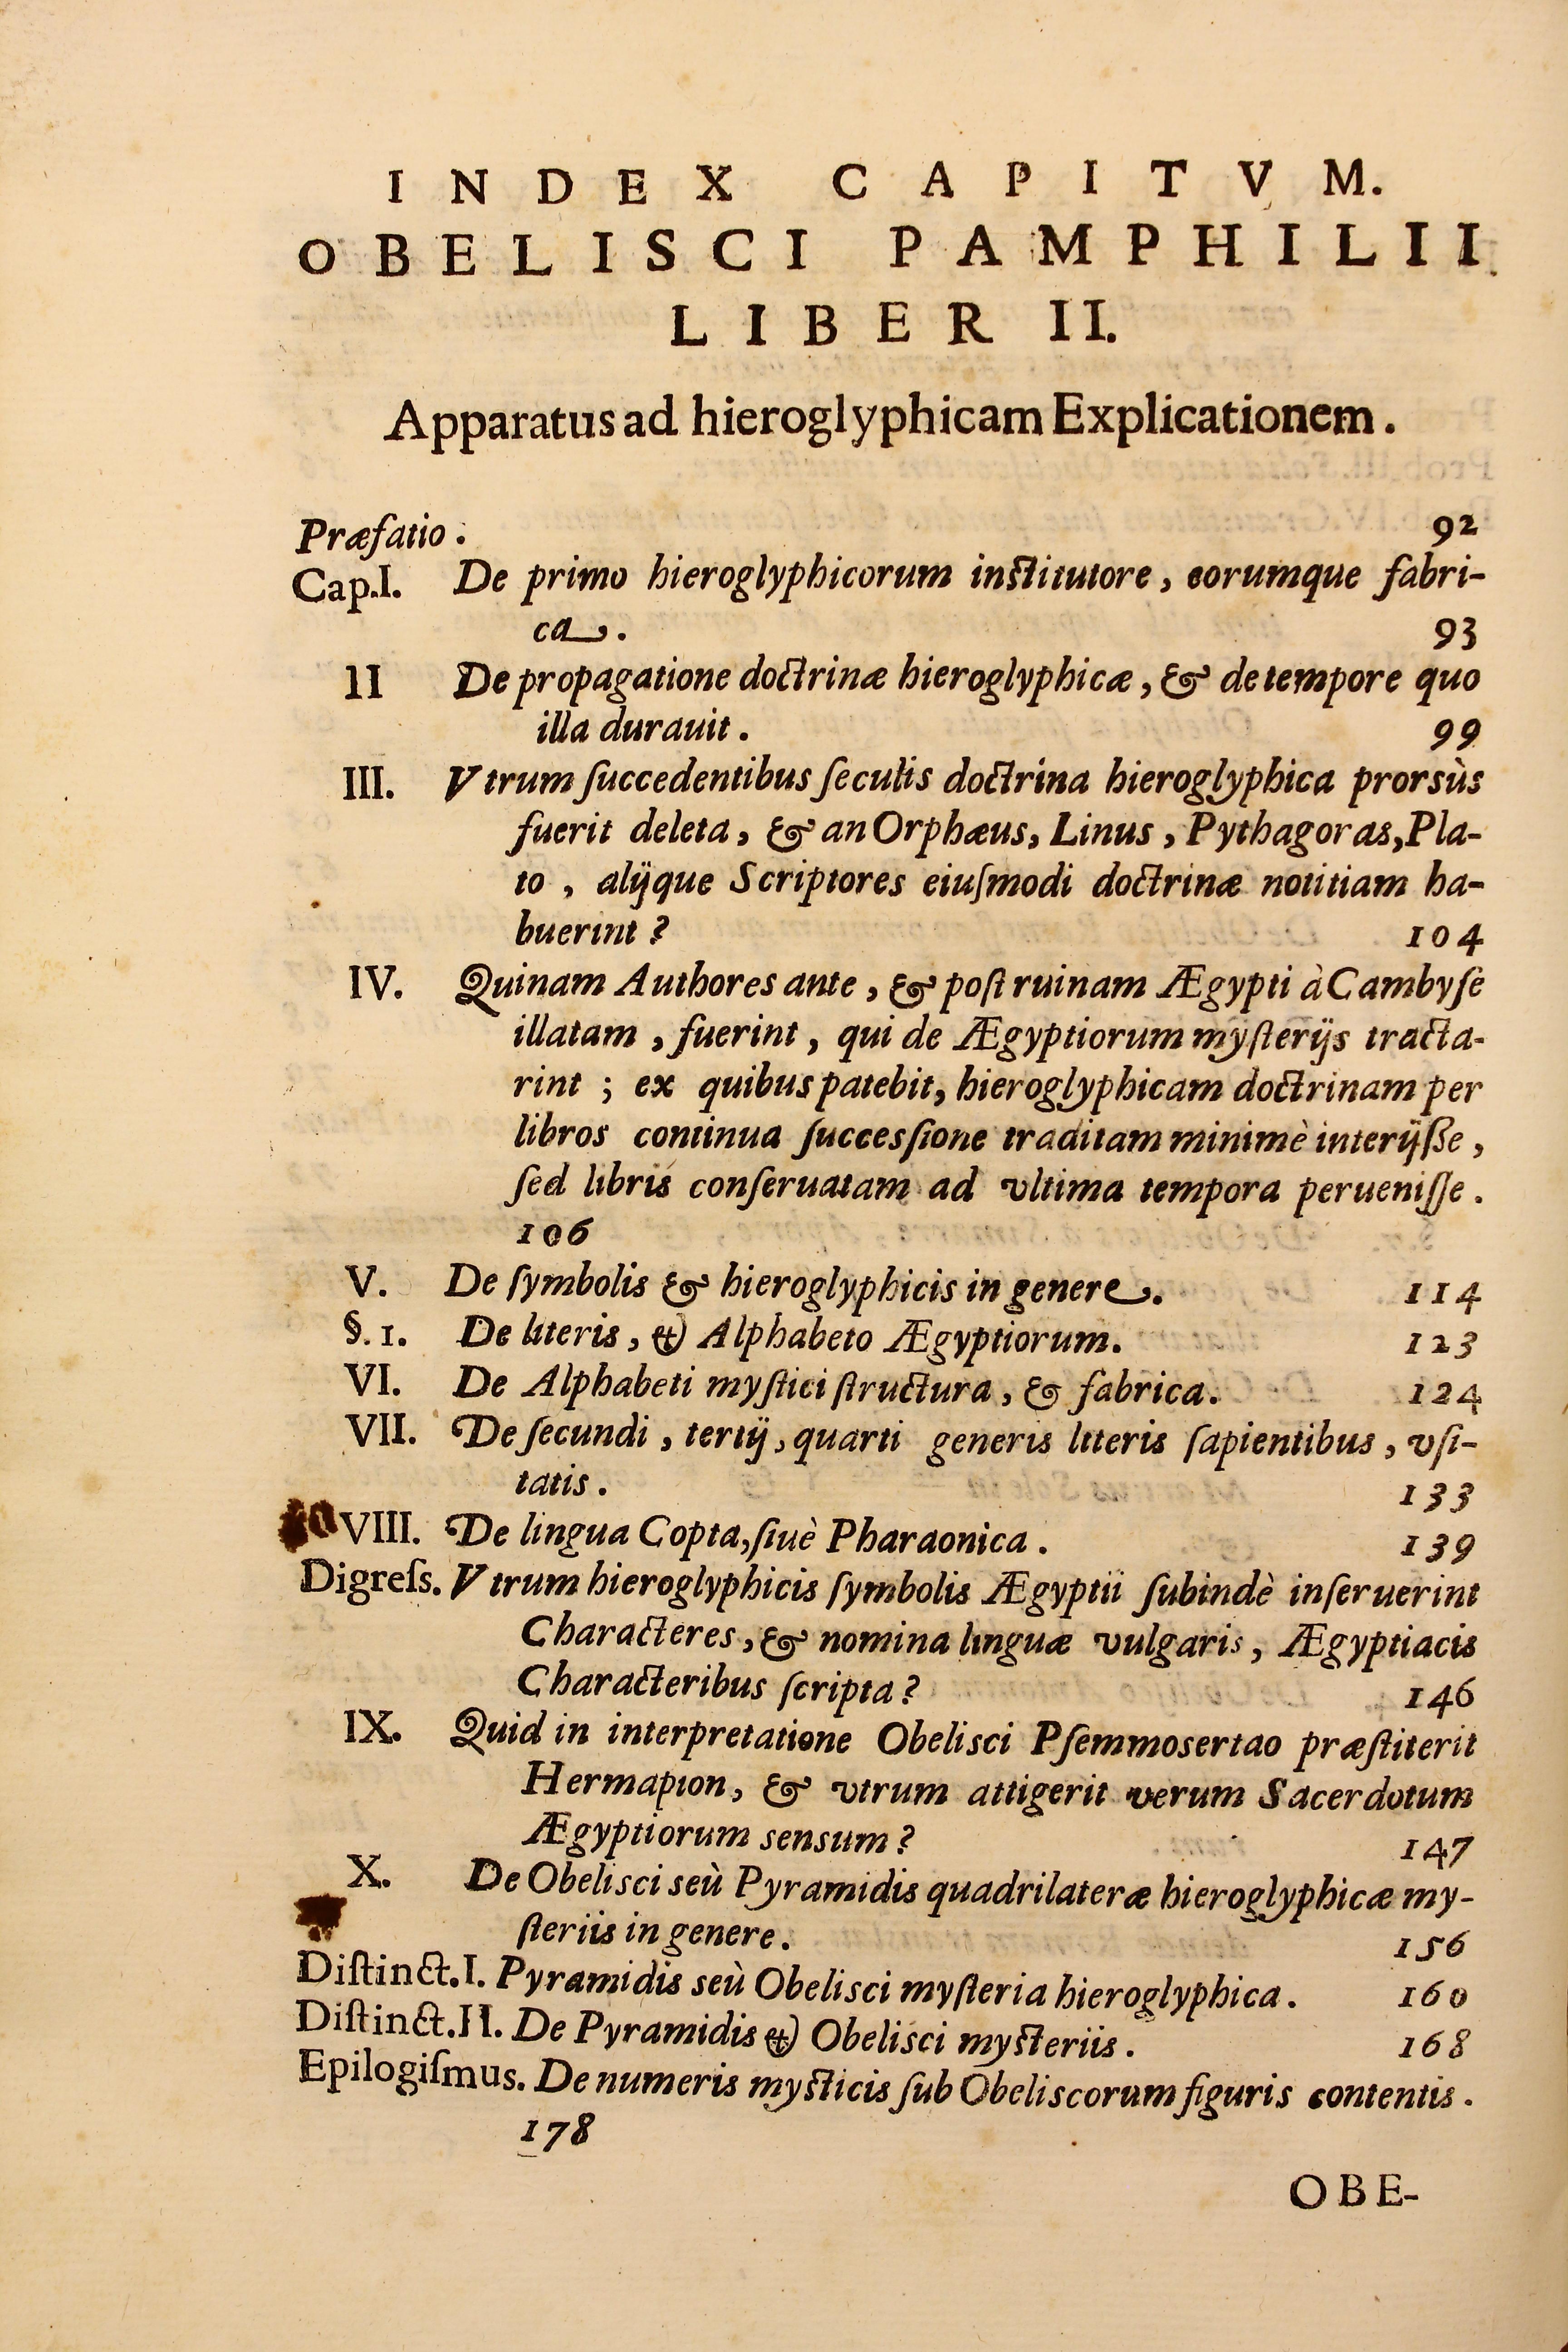 INDEX CAPITVM.
OBELISCI PAMPHILII.
LIBER II.
Apparatus ad hieroglyphicam Explicationem.
Præfatio. 92
Cap.I. De primo hieroglyphicorum inſtitutore, eorumque fabri-
ca. 93
II De propagatione doctrinæ hieroglyphicæ, & de tempore quo
illa durauit. 99
III. Vtrum ſuccedentibus ſeculis doctrina hieroglyphica prorsùs
fuerit deleta, & an Orphæus, Linus, Pythagoras, Pla-
to, alijque Scriptores eiuſmodi doctrinæ notitiam ha-
buerint? 104
IV. Quinam Authores ante, & poſt ruinam Ægypti à Cambyſe
illatam, fuerint, qui de Ægyptiorum myſterijs tracta-
rint; ex quibus patebit, hieroglyphicam doctrinam per
libros continua ſucceſſione traditam minimè interijſſe,
ſed libris conſeruatam ad vltima tempora perueniſſe.
106
V. De ſymbolis & hieroglyphicis in genere. 114
§.1. De literis, & Alphabeto Ægyptiorum. 123
VI. De Alphabeti myſtici ſtructura, & fabrica. 124
VII. De ſecundi, tertij, quarti generis literis ſapientibus, vſi-
tatis. 133
VIII. De lingua Copta, ſiuè Pharaonica. 139
Digreſs. Vtrum hieroglyphicis ſymbolis Ægyptii ſubindè inſeruerint
Characteres, & nomina linguæ vulgaris, Ægyptiacis
Characteribus ſcripta? 146
IX. Quid in interpretatione Obelisci Pſemmosertao præſtiterit
Hermapion, & vtrum attigerit verum Sacerdotum
Ægyptiorum sensum? 147
X. De Obelisci seù Pyramidis quadrilateræ hieroglyphicæ my-
ſteriis in genere. 156
Diſtinct.I. Pyramidis seù Obelisci myſteria hieroglyphica. 160
Diſtinct.II. De Pyramidis & Obelisci myſteriis. 168
Epilogiſmus. De numeris myſticis ſub Obeliscorum figuris contentis.
178
OBE-